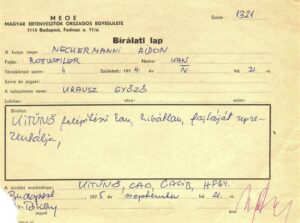 M E O E
MAGYAR EBTENYÉSZTŐK ORSZÁGOS EGYESÜLETE
1114 Budapest, Fadrusz u. 11/a.
Szám: 1321
Bírálati lap
A kutya neve: NECKERMANNI AIDON
Fajta: ROTWEILER KAN
Törzskönyvi szám: 4 Született 1974 év IV. hó 21.-n
Színe és jegyei:
A tulajdonos neve: KRAUSZ GYŐZŐ
Bírálat:
KITŰNŐ felépítésű kan, hibátlan, fajtáját repre-
zentálja,
A bírálat eredménye: KITŰNŐ, CAC, CACIB, HFGY.
Budapest 197 év szeptember hó 21.-n